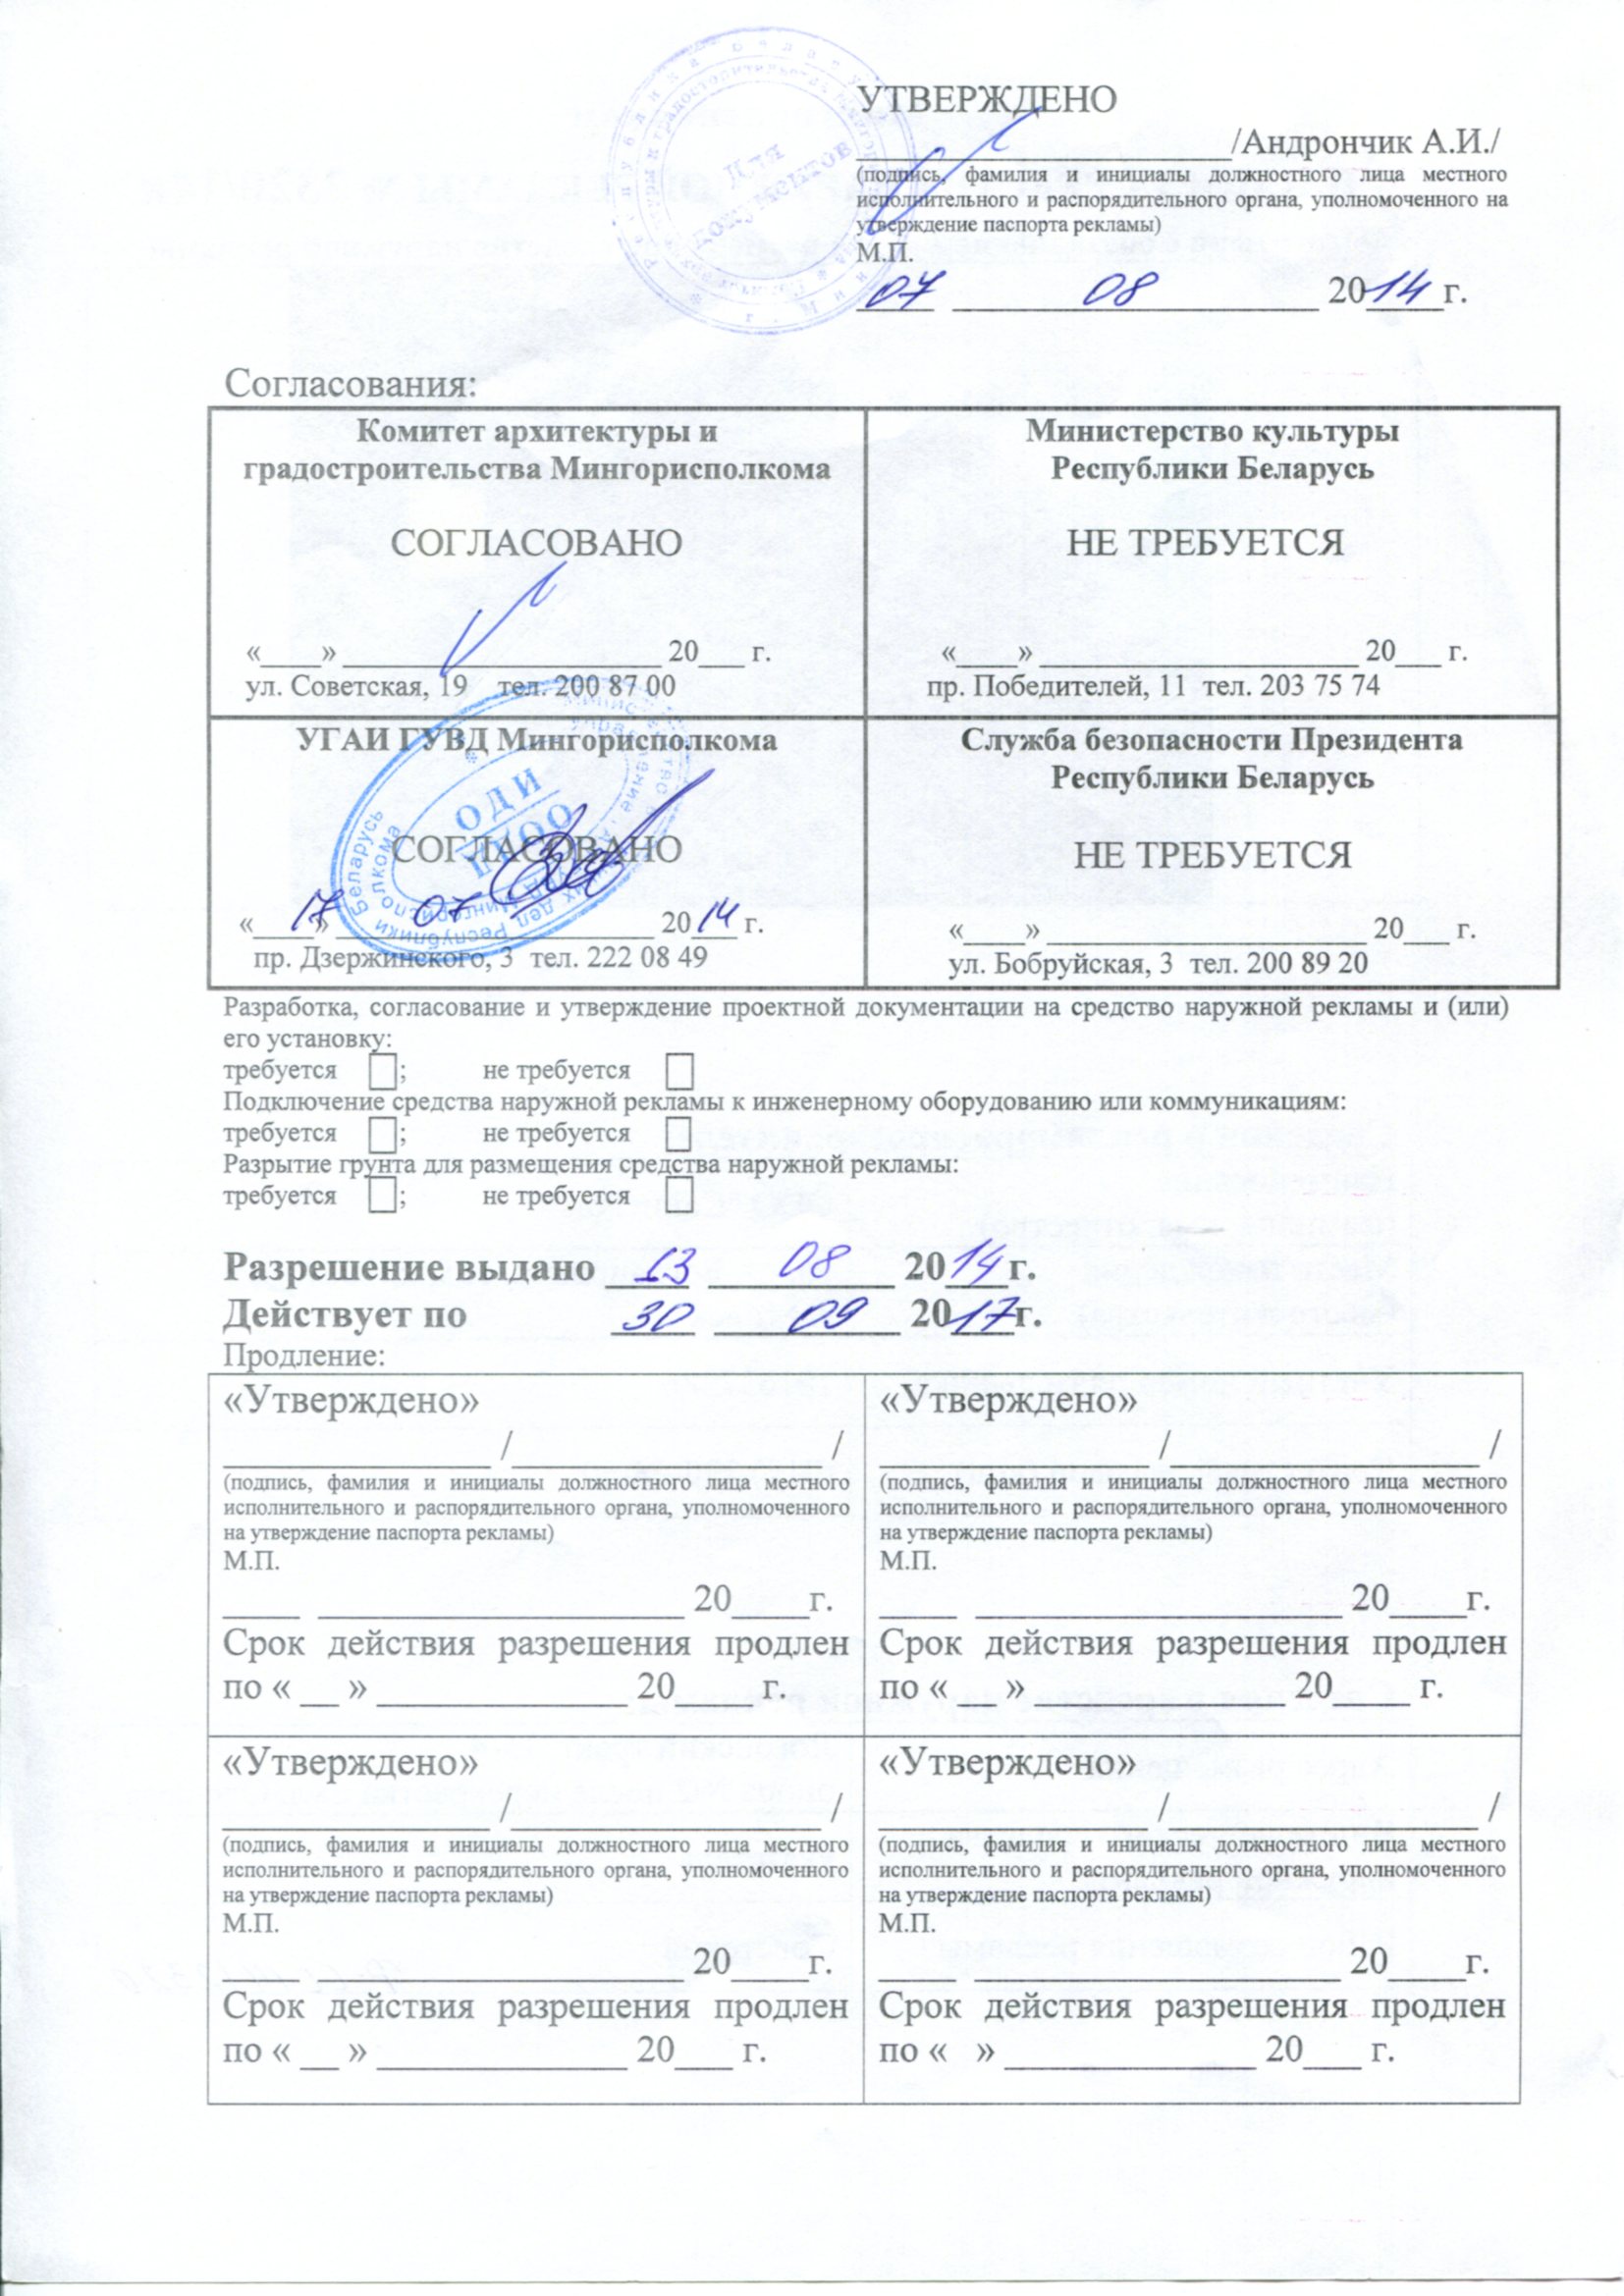 УТВЕРЖДЕНО
____________________/Андрончик А.И./
(подпись, фамилия и инициалы должностного лица местного
исполнительного и распорядительного органа, уполномоченного на
утверждение паспорта рекламы)
М.П.
07 08 2014 г.
Для
документов
Согласования:
Комитет архитектуры и
градостроительства Мингорисполкома
СОГЛАСОВАНО
«____» ____________________ 20___ г.
ул. Советская, 19 тел. 200 87 00
Министерство культуры
Республики Беларусь
НЕ ТРЕБУЕТСЯ
«____» ____________________ 20___ г.
пр. Победителей, 11 тел. 203 75 74
УГАИ ГУВД Мингорисполкома
СОГЛАСОВАНО
ОДИ
«17» 07 2014 г.
пр. Дзержинского, 3 тел. 222 08 49
Служба безопасности Президента
Республики Беларусь
НЕ ТРЕБУЕТСЯ
«____» ____________________ 20___ г.
ул. Бобруйская, 3 тел. 200 89 20
Разработка, согласование и утверждение проектной документации на средство наружной рекламы и (или)
его установку:
требуется ; не требуется
Подключение средства наружной рекламы к инженерному оборудованию или коммуникациям:
требуется ; не требуется
Разрытие грунта для размещения средства наружной рекламы:
требуется ; не требуется
Разрешение выдано 13 08 2014г.
Действует по 30 09 2017г.
Продление:
«Утверждено»
______________ /________________ /
(подпись, фамилия и инициалы должностного лица местного
исполнительного и распорядительного органа, уполномоченного
на утверждение паспорта рекламы)
М.П.
____ ___________________ 20____г.
Срок действия разрешения продлен
по « __ » _____________ 20____ г.
«Утверждено»
______________ /________________ /
(подпись, фамилия и инициалы должностного лица местного
исполнительного и распорядительного органа, уполномоченного
на утверждение паспорта рекламы)
М.П.
____ ___________________ 20____г.
Срок действия разрешения продлен
по « __ » _____________ 20____ г.
«Утверждено»
______________ /________________ /
(подпись, фамилия и инициалы должностного лица местного
исполнительного и распорядительного органа, уполномоченного
на утверждение паспорта рекламы)
М.П.
____ ___________________ 20____г.
Срок действия разрешения продлен
по « __ » _____________ 20___ г.
«Утверждено»
______________ /________________ /
(подпись, фамилия и инициалы должностного лица местного
исполнительного и распорядительного органа, уполномоченного
на утверждение паспорта рекламы)
М.П.
____ ___________________ 20____г.
Срок действия разрешения продлен
по « » _____________ 20___ г.